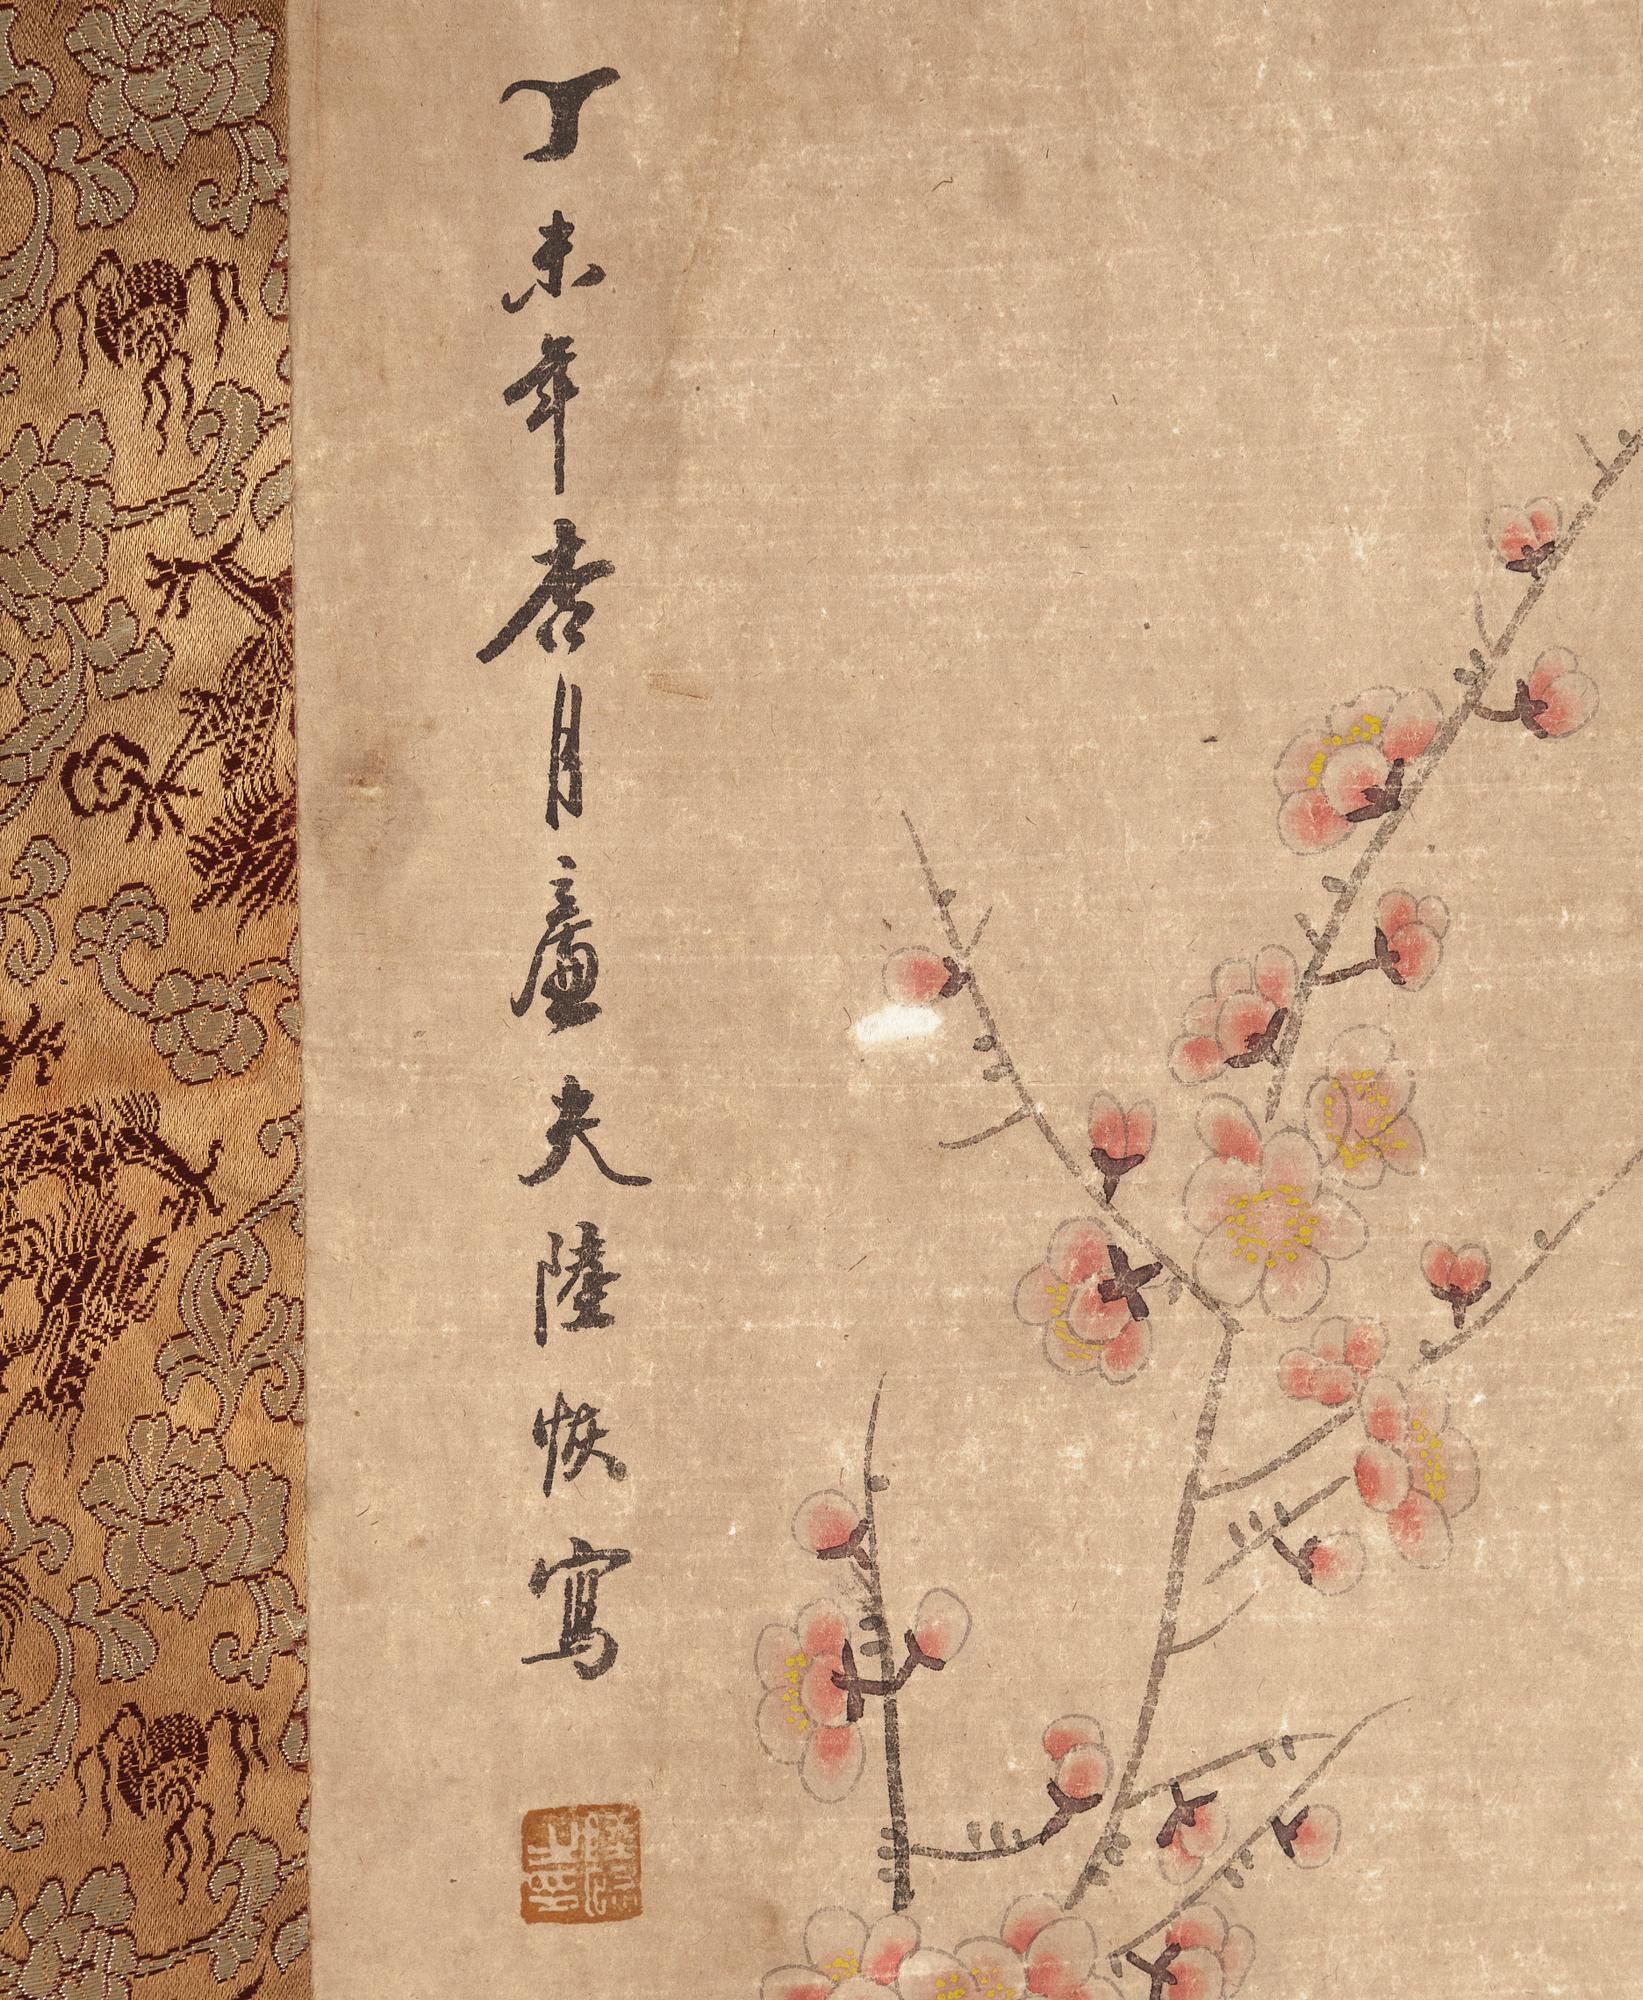 丁未年杏月廉夫陸恢寫